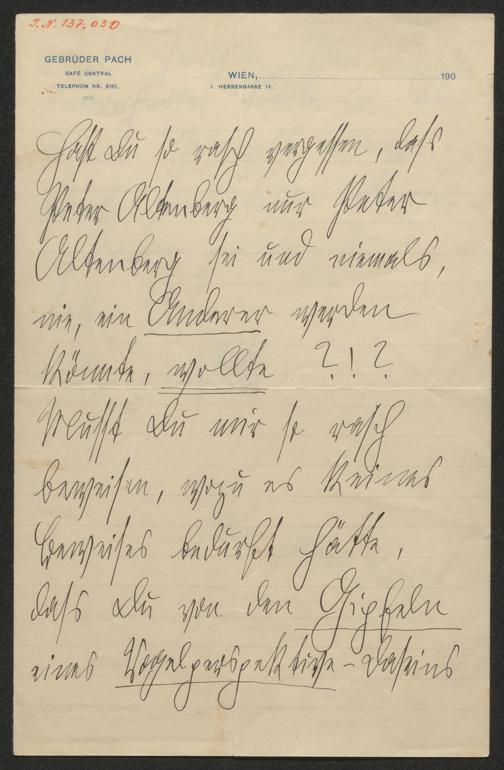 I.N. 137.030
GEBRÜDER PACH
CAFÉ CENTRAL
TELEPHON NR. 3767.
WIEN, 190
I. HERRENGASSE 14.
Hast Du so rasch vergessen, dass
Peter Altenberg nur Peter
Altenberg sei und niemals,
nie, ein Anderer werden
könnte, wollte ?!?
Musst Du mir so rasch
beweisen, wozu es keines
Beweises bedurft hätte,
dass Du von den Gipfeln
eines Vogelperspektive-Daseins